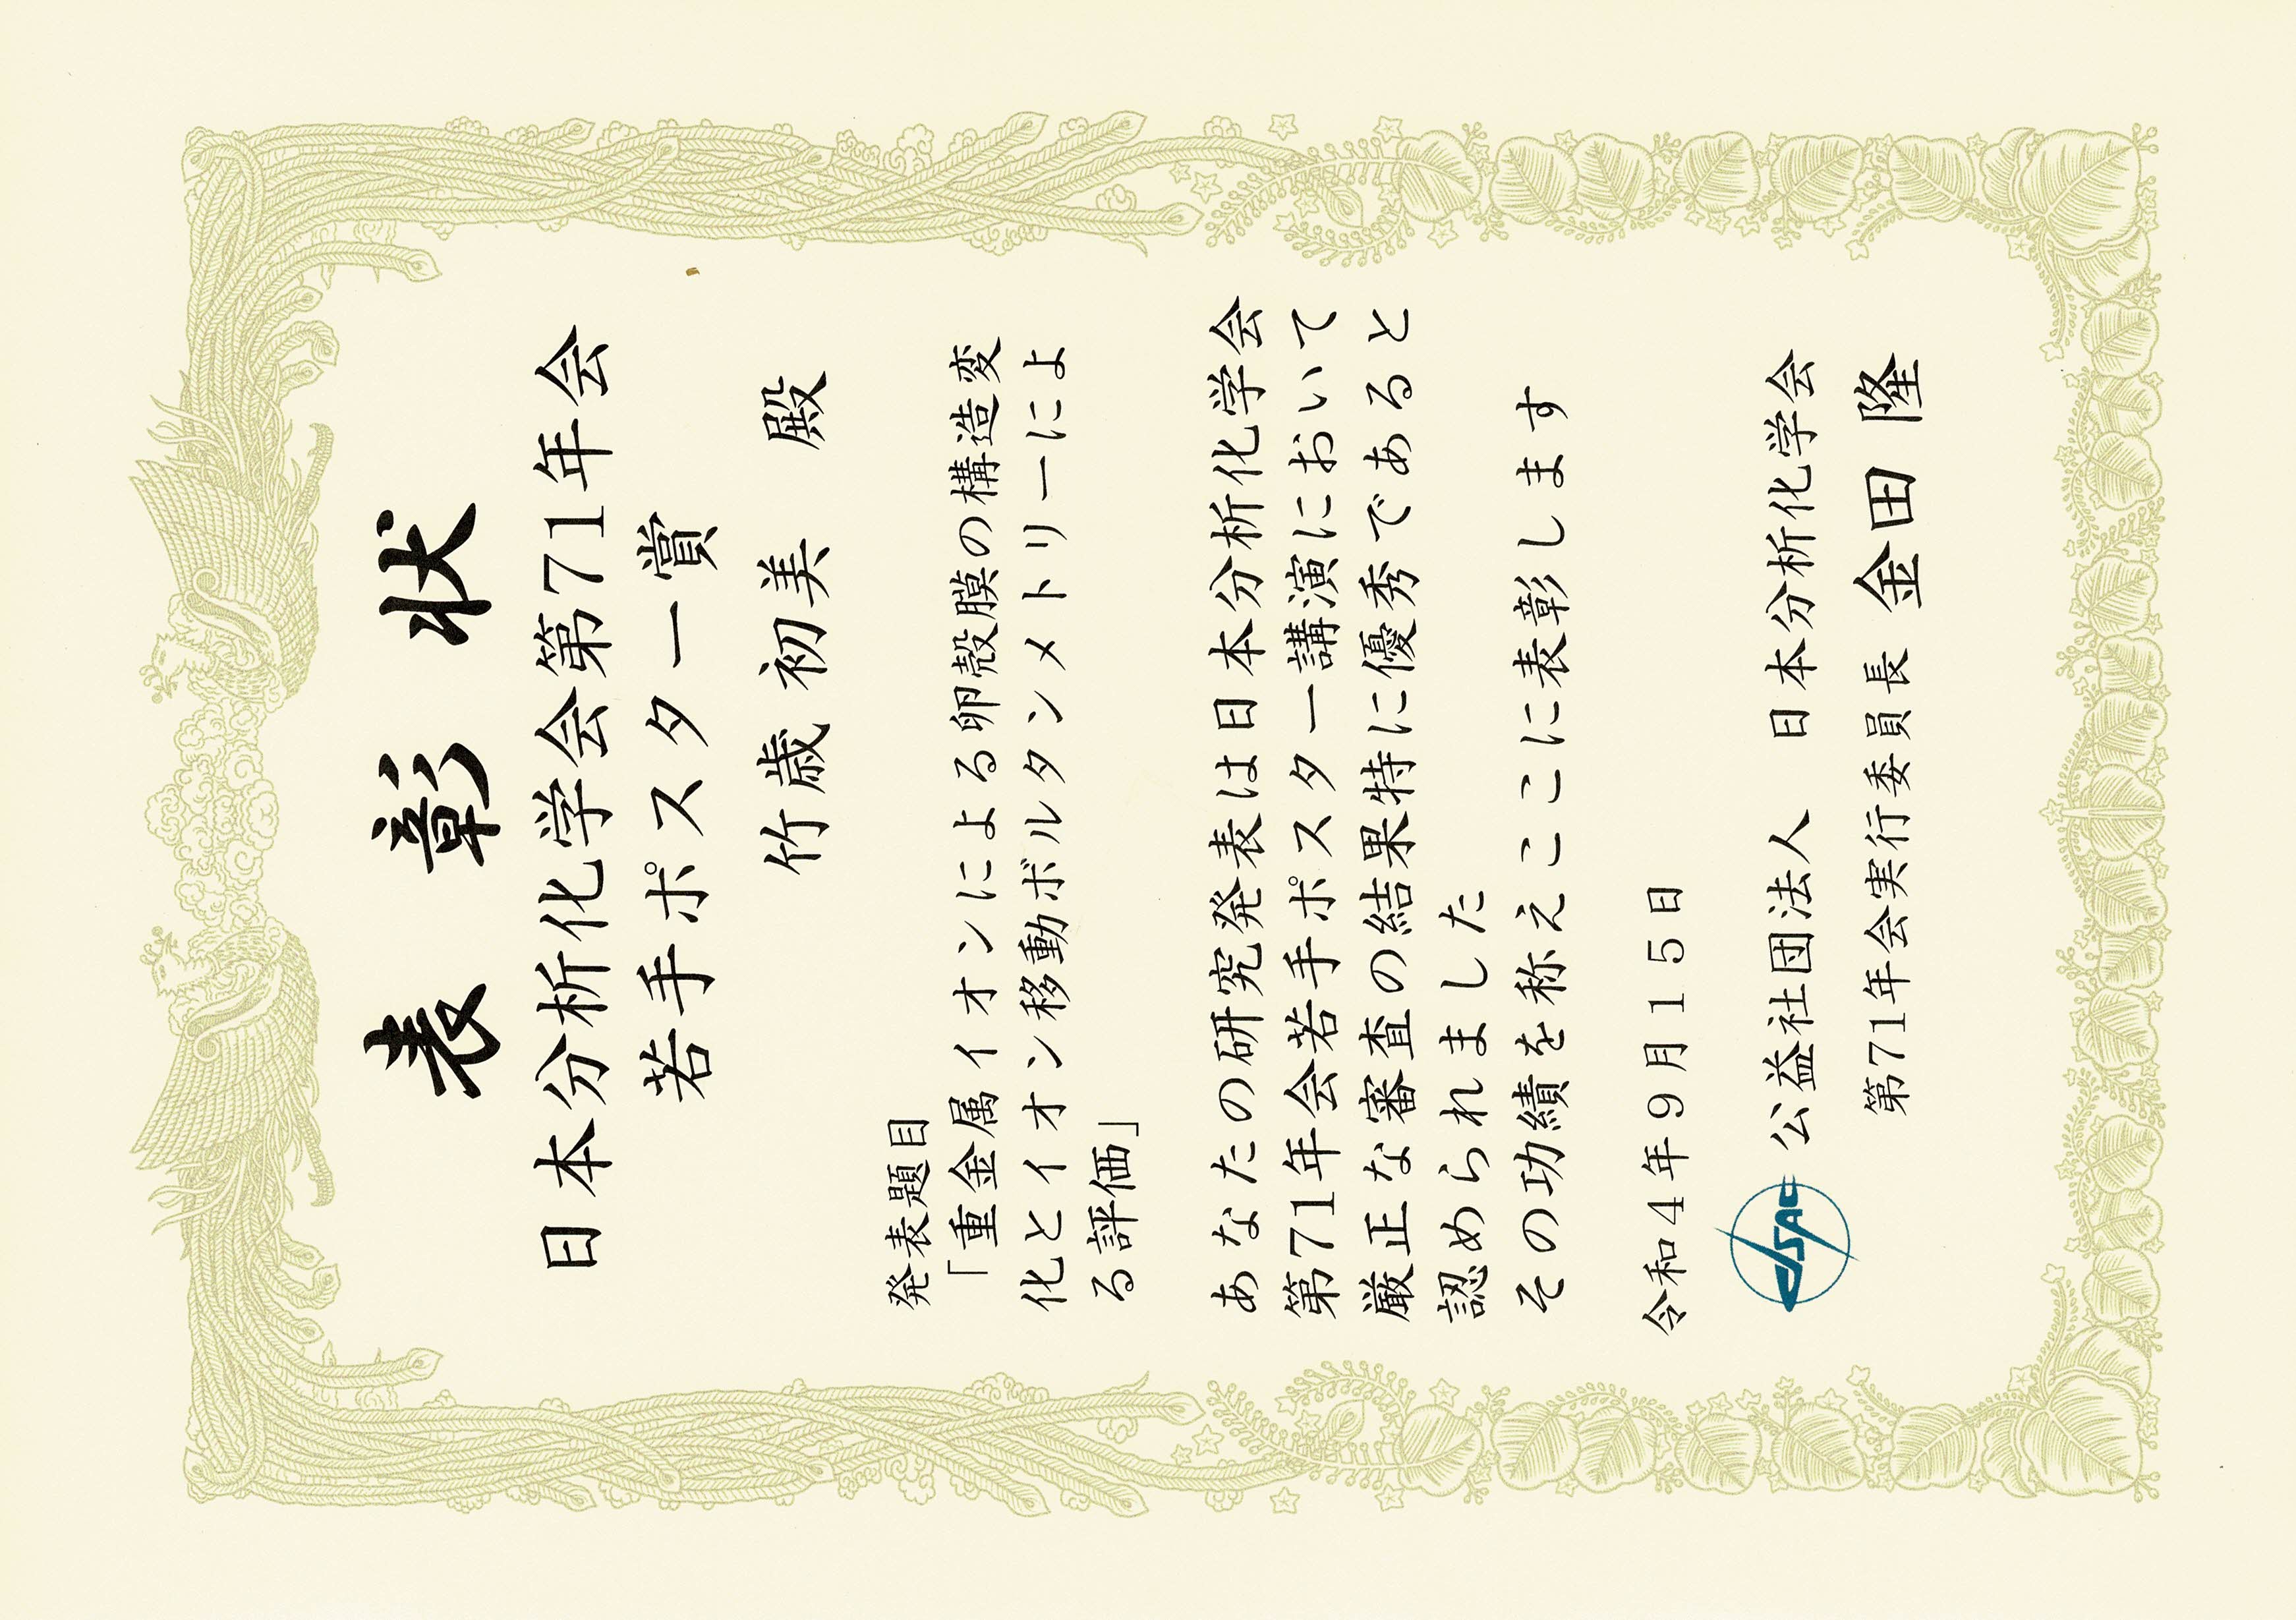 表彰状
日本分析化学会第71年会
若手ポスター賞
竹歳 初美 殿
発表題目
「重金属イオンによる卵殻膜の構造変
化とイオン移動ボルタンメトリーによ
る評価」
あなたの研究発表は日本分析化学会
第71年会若手ポスター講演において
厳正な審査の結果特に優秀であると
認められました
その功績を称えここに表彰します
令和4年9月15日
JSAC
公益社団法人 日本分析化学会
第71年会実行委員長 金田 隆